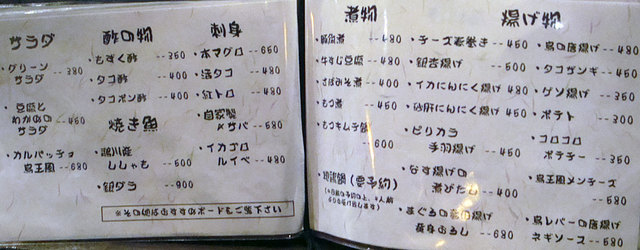 サラダ
・グリーン
サラダ --380
・豆腐と
わかめの
サラダ --450
・カルパッチョ
烏王風 --680
酢の物
・もずく酢 --350
・タコ酢 --400
・タコポン酢 --400
焼き魚
・鵡川産
ししゃも --500
・銀ダラ --900
刺身
・本マグロ --650
・活タコ --480
・紅トロ --480
・自家製
〆サバ --580
・イカゴロ
ルイベ --480
※その他はおすすめボードもご覧下さい
煮物
・豚角煮 --480
・牛すじ豆腐 --480
・さばみそ煮 --400
・もつ煮 --450
・もつキムチ鍋
--600
鍋(要予約)
揚げ物
・チーズ春巻き --450
・銀杏揚げ --500
・イカにんにく揚げ --480
・砂肝にんにく揚げ --450
・ピリカラ
手羽揚げ --450
・なす揚げの
煮びたし --400
・まぐろの竜田揚げ
香身おろし --680
・烏の唐揚げ --480
・タコザンギ --450
・ゲソ揚げ --350
・ポテト --300
・コロコロ
ポテチー --350
・烏王風メンチーズ
--580
・烏レバーの唐揚げ
ネギソース --580